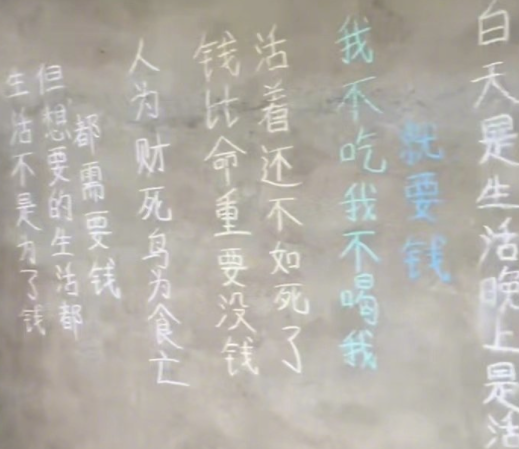 生活不是为了钱
但想要的生活都
都需要钱
人为财死鸟为食亡
钱比命重要没钱
活着还不如死了
我不吃我不喝我
就要钱
白天是生活晚上是活